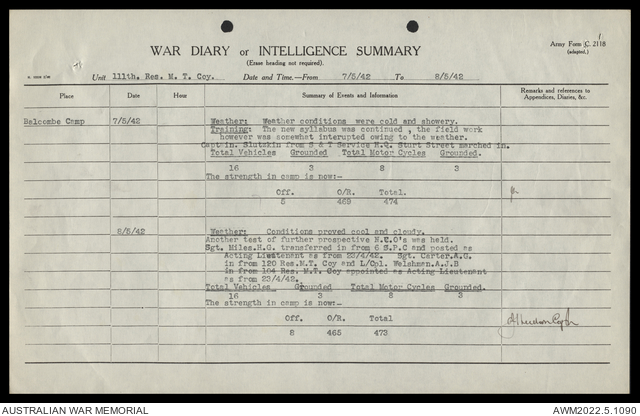 Army Form C. 2118
(adapted.)
WAR DIARY or INTELLIGENCE SUMMARY
(Erase heading not required).
Unit 111th. Res. M. T. Coy. Date and Time.—From 7/5/42 To 8/5/42
Place Date Hour Summary of Events and Information Remarks and references to
Appendices, Diaries, &c.
Balcombe Camp 7/5/42 Weather: Weather conditions were cold and showery.
Training: The new syllabus was continued , the field work
however was somewhat interupted owing to the weather.
Captain. Slutskin from S & T Service H.Q. Sturt Street marched in.
Total Vehicles Grounded Total Motor Cycles Grounded.
16 3 8 3
The strength in camp is now:-
Off. O/R. Total.
5 469 474
8/5/42 Weather: Conditions proved cool and cloudy.
Another test of further prospective N.C.O's was held.
Sgt. Miles.H.G. transferred in from 6 S.P.C and posted as
Acting Lieutenant as from 23/4/42. Sgt. Carter.A.G.
in from 120 Res.M.T. Coy and L/Cpl. Welshman.A.J.B
in from 104 Res.M.T. Coy appointed as Acting Lieutenant
as from 23/4/42.
Total Vehicles Grounded Total Motor Cycles Grounded.
16 3 8 3
The strength in camp is now:-
Off. O/R. Total
8 465 473
AUSTRALIAN WAR MEMORIAL AWM2022.5.1090